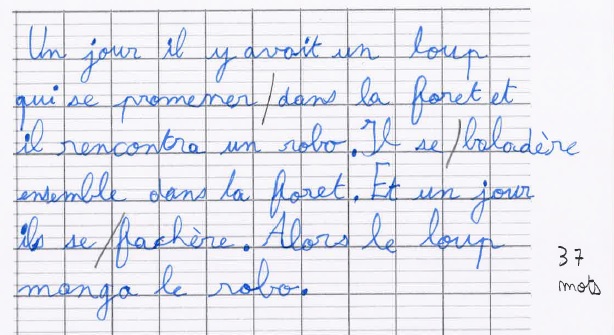 Un jour il y avait un loup
qui se promener/dans la foret et
il rencontra un robo. Il se/baladère
ensemble dans la foret. Et un jour
ils se/fachère. Alors le loup
manga le robo.
37
mots